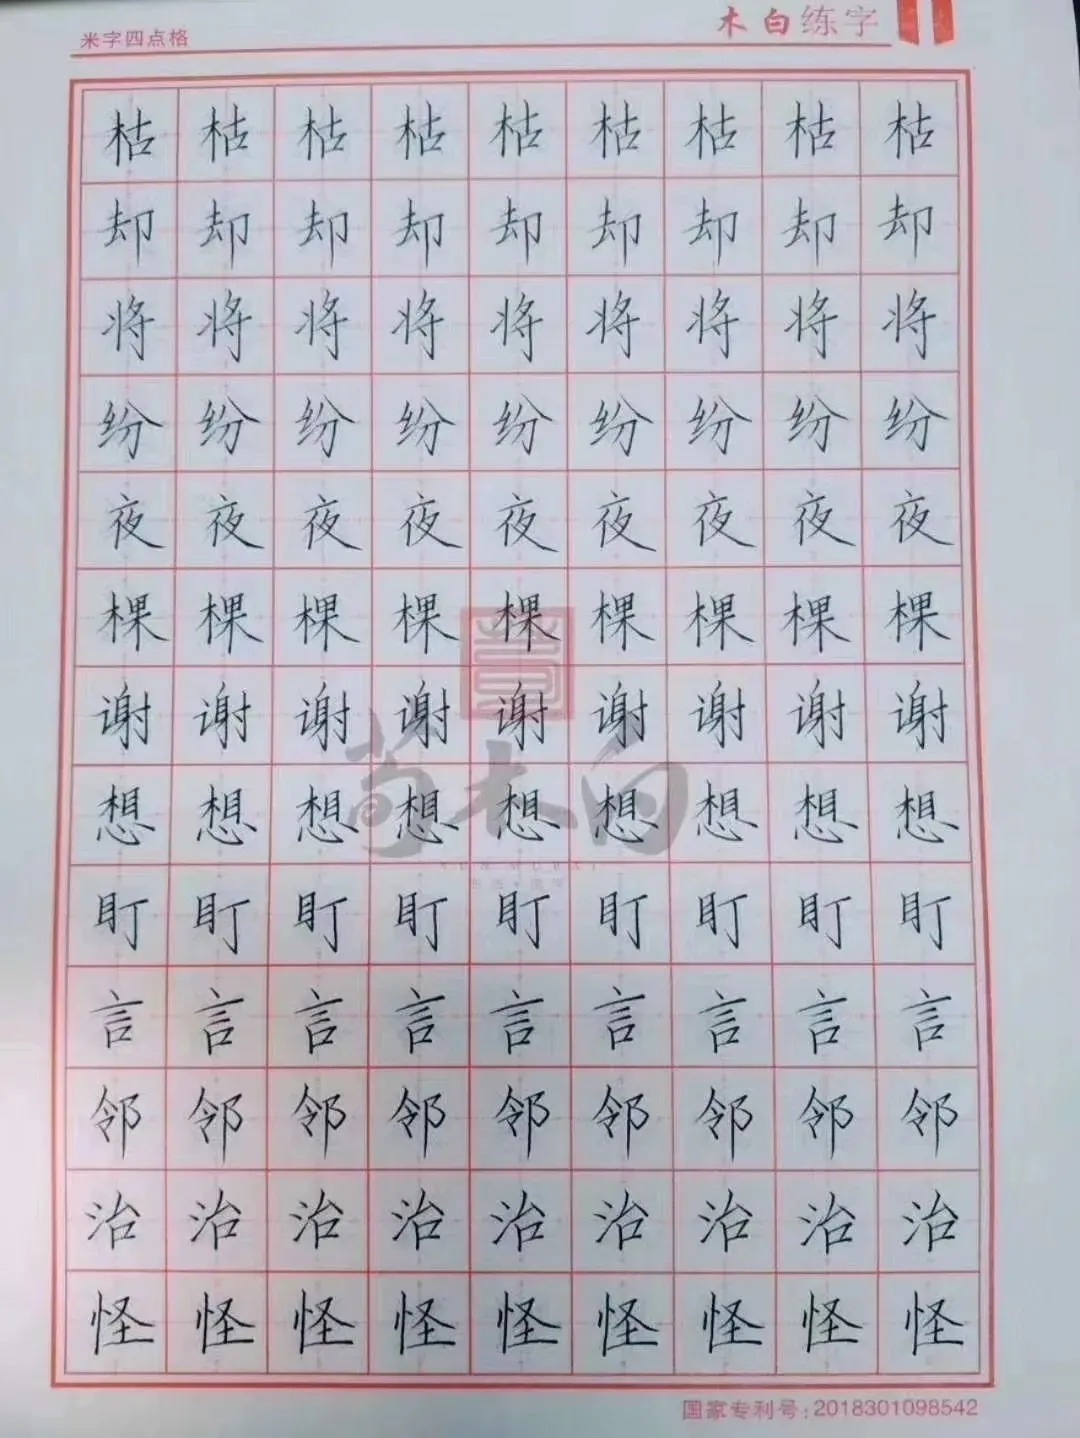 米字四点格
木白练字
枯枯枯枯枯枯枯枯枯
却却却却却却却却却
将将将将将将将将将
纷纷纷纷纷纷纷纷纷
夜夜夜夜夜夜夜夜夜
棵棵棵棵棵棵棵棵棵
谢谢谢谢谢谢谢谢谢
想想想想想想想想想
荀木白
盯盯盯盯盯盯盯盯盯
言言言言言言言言言
邻邻邻邻邻邻邻邻邻
治治治治治治治治治
怪怪怪怪怪怪怪怪怪
国家专利号:2018301098542